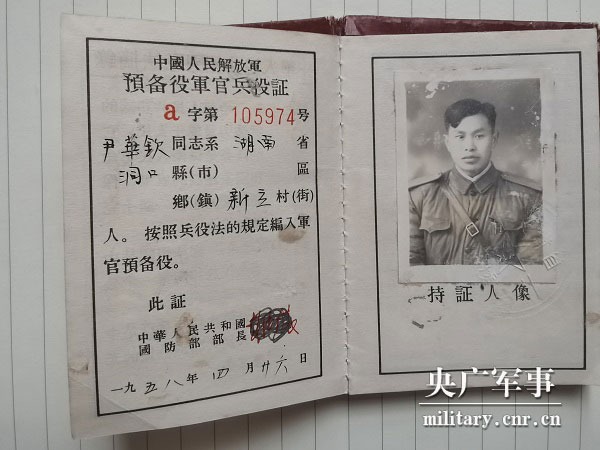 中國人民解放軍
預备役軍官兵役証
a 字第 105974 号
尹華欽 同志系 湖南 省
洞口 縣(市) 區
鄉(鎮) 新立 村(街)
人。按照兵役法的規定編入軍
官預备役。
此証
中華人民共和國
國防部部長
一九五八年四月廿六日
持証人像
央广军事
military.cnr.cn